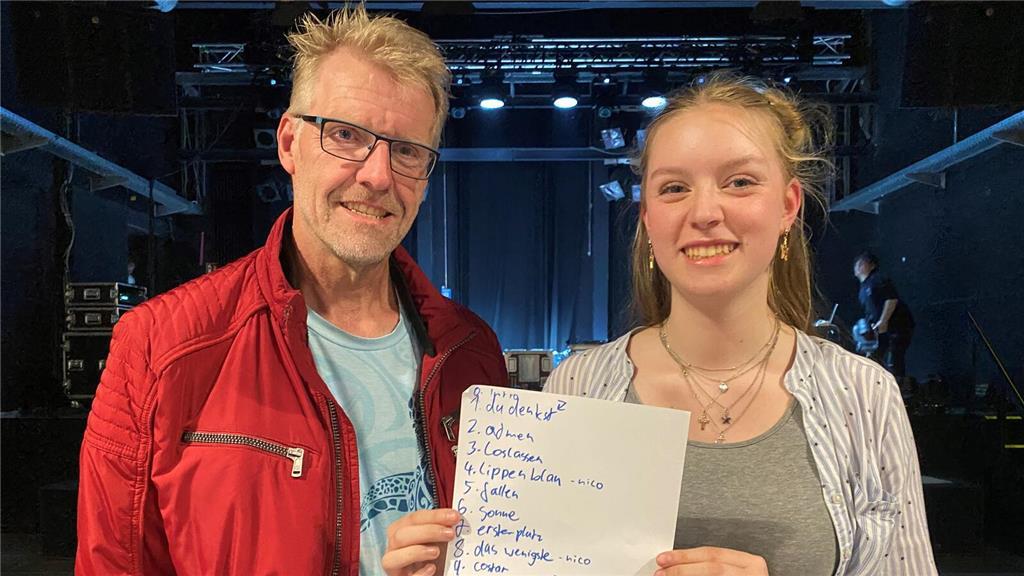 0. irrig
1. du denkst
2. atmen
3. Loslassen
4. lippenblau - nico
5. fallen
6. sonne
7. erster platz
8. das wenigste - nico
9. costar